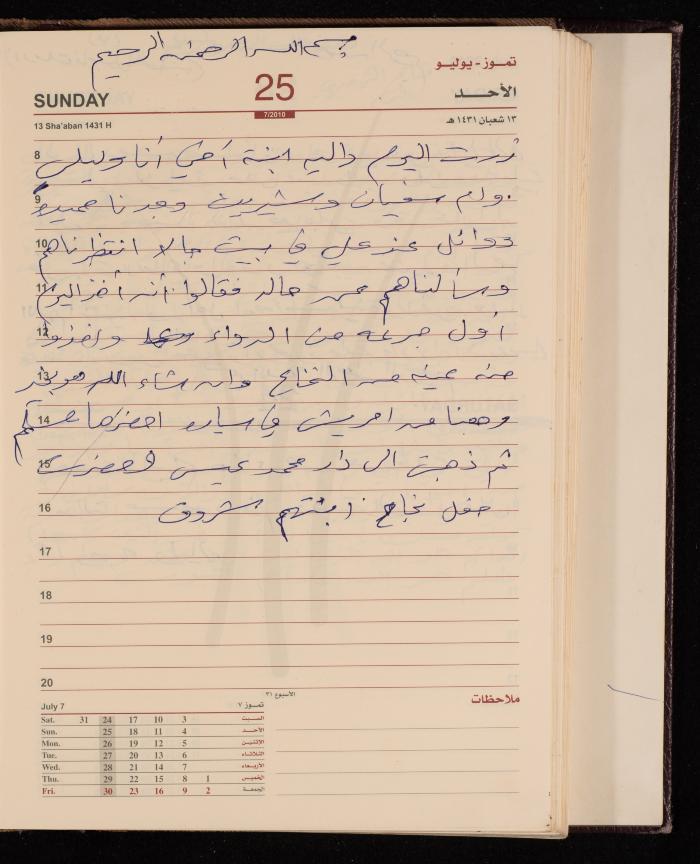 بسم الله الرحمن الرحيم
تمـوز - يوليـو
SUNDAY
25
الأحـد
7/2010
13 Sha'aban 1431 H
١٣ شعبان ١٤٣١ هـ
8 زرت اليوم داليه ابنة أختي أنا وليلى
9 وام سفيان وشيرين وجدنا حميده
10 ووائل عند علي في بيت جالا انتظرناهم
11 وسألناهم عن حاله فقالوا أنه أخذ اليوم
12 أول جرعه من الدواء وأخذوا
13 منه عينه من النخاع وان شاء الله هو بخير
14 وجئنا من في سياره احضرها
15 ثم ذهبت الى دار محمد عيسى فحضرت
16 حفل نجاح ابنتهم شروق
17
18
19
20
July 7
تمـوز ٧
الأسبوع ٣١
ملاحظات
Sat. 31 24 17 10 3 السبت
Sun. 25 18 11 4 الأحد
Mon. 26 19 12 5 الإثنين
Tue. 27 20 13 6 الثلاثاء
Wed. 28 21 14 7 الأربعاء
Thu. 29 22 15 8 1 الخميس
Fri. 30 23 16 9 2 الجمعة